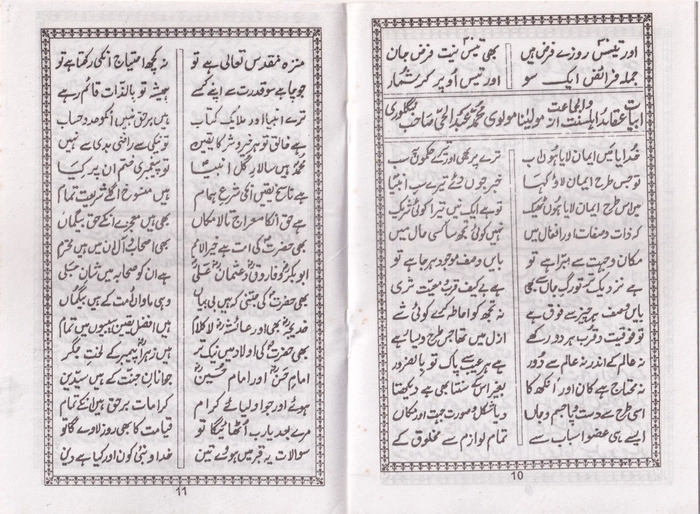 اور تیسؔ روزے فرض ہیں بھی تیسؔ نیت فرض جان
جملہ فرائض ایک سو اور تیس اُوپر کر شمار
ابیات عقائد اہلسنت والجماعت از مولینا مولوی محمد عبدالحئ صاحب بنگلوری
خدایا میں ایمان لایا ہوں اب ترے پر بھی اور تیرے حکموں پہ سب
تو جس طرح ایمان لاؤ کہا خبر جوں دئے تیرے سب انبیا
میں اس طرح ایمان لایا ہوں ٹھیک تو ہے ایک نیں تیرا کوئی شریک
کہ ذات و صفات اور افعال میں نہیں کوئی تجھ سا کسی حال میں
مکان و جہت سے مبرا ہے تو بایں وصف موجود ہر جا ہے تو
ہے نزدیک تے تو رگ جاں سے بھی ہے بے کیف قرب و معیت تری
بایں وصف ہر چیز سے فوق ہے نہ تجھ کو احاطہ کرے کوئی شے
تو فوقیت و قرب ہر دو رکھے ازل میں تھا جس طرح ویسا ہی ہے
نہ عالم کے اندر نہ عالم سے دُور ہے ہر عیب سے پاک تو بالضرور
نہ محتاج ہے کان اور آنکھ کا بغیر اس کے سنتا بھی ہے دیکھتا
اسی طرح ہے دست و پا جسم و جاں و یا شکل و صورت جہت اور مکاں
ایسے ہی عضو اسباب سے تمام لوازم سے مخلوق کے
10
منزہ مقدس تعالی ہے تو نہ کچھ احتیاج انکی رکھتا ہے تو
جو چاہے سو قدرت سے اپنے کرے ہمیشہ تو بالذات قائم رہے
ترے انبیا اور ملایک کتاب ہیں برحق نہیں انکو حد و حساب
ہے خالق تو ہر خیر و شر کا یقین تو نیکی سے راضی بدی سے نہیں
محمدؐ ہیں سالارِ کل انبیا تو پیغمبری ختم ان پر کیا
ہے ناسخ یقین انکی شرع تمام ہیں منسوخ اگلے شریعت تمام
ہے حق انکا معراج تا لامکاں بھی ہیں معجزے انکے حق بیگماں
بھی حضرت کی امت ہے خیر الامم بھی اصحاب و آل ان میں ہیں محترم
ابوبکرؓ و فاروقؓ و عثمانؓ علیؓ ہے ان کو صحابہ میں شان جلی
بھی حضرت کی جتنی کہ ہیں بی بیاں وہی ماواں اُمت کے ہیں بیگماں
خدیجہؓ بھی اور عائشہؓ لا کلام ہیں افضل یقین بیبیوں میں تمام
بھی حضرتؐ کی اولاد میں نیک تر ہیں زہراؓ پیمبر کے لخت جگر
امام حسنؓ اور امام حسینؓ جوانانِ جنت کے ہیں سیدین
ہوئے اور جو اولیائے کرام کرامات برحق ہیں انکے تمام
مرے بعد یارب اُٹھائیگا تو قیامت کا بھی روز لاوے گا تو
سوالات یہ قبر میں ہونگے تین خدا و نبی کون اور کیا ہے دین
11